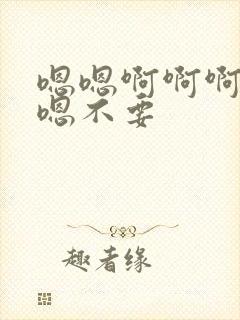 嗯嗯啊啊啊
嗯不要
趣者缘